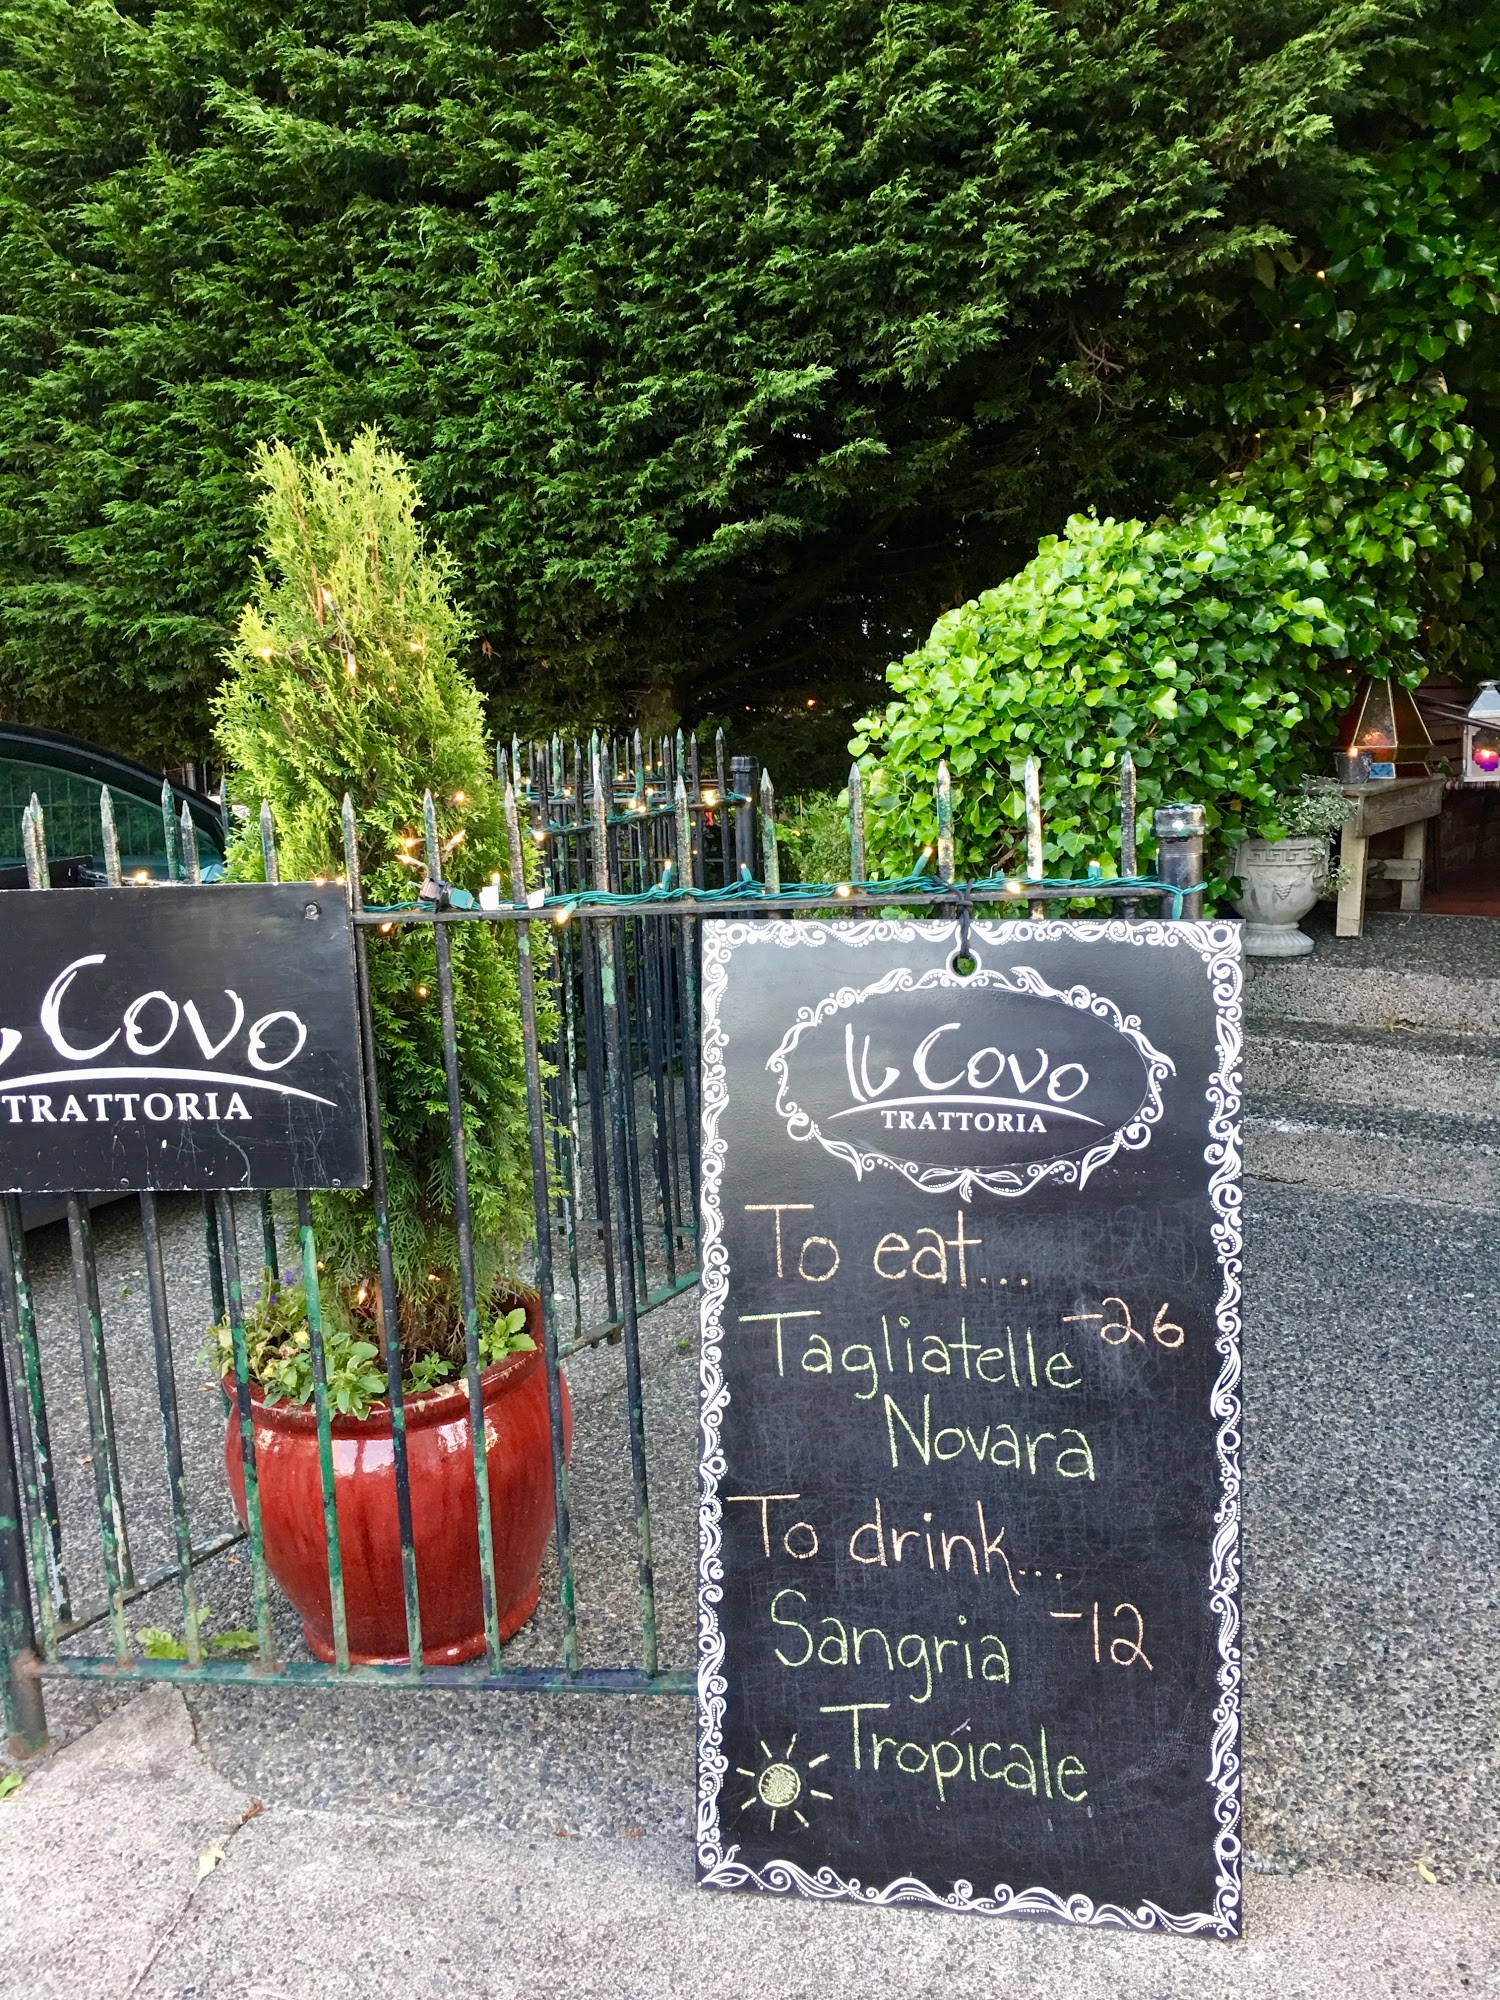 Covo
TRATTORIA
IL Covo
TRATTORIA
To eat...
Tagliatelle -26
Novara
To drink...
Sangria -12
Tropicale